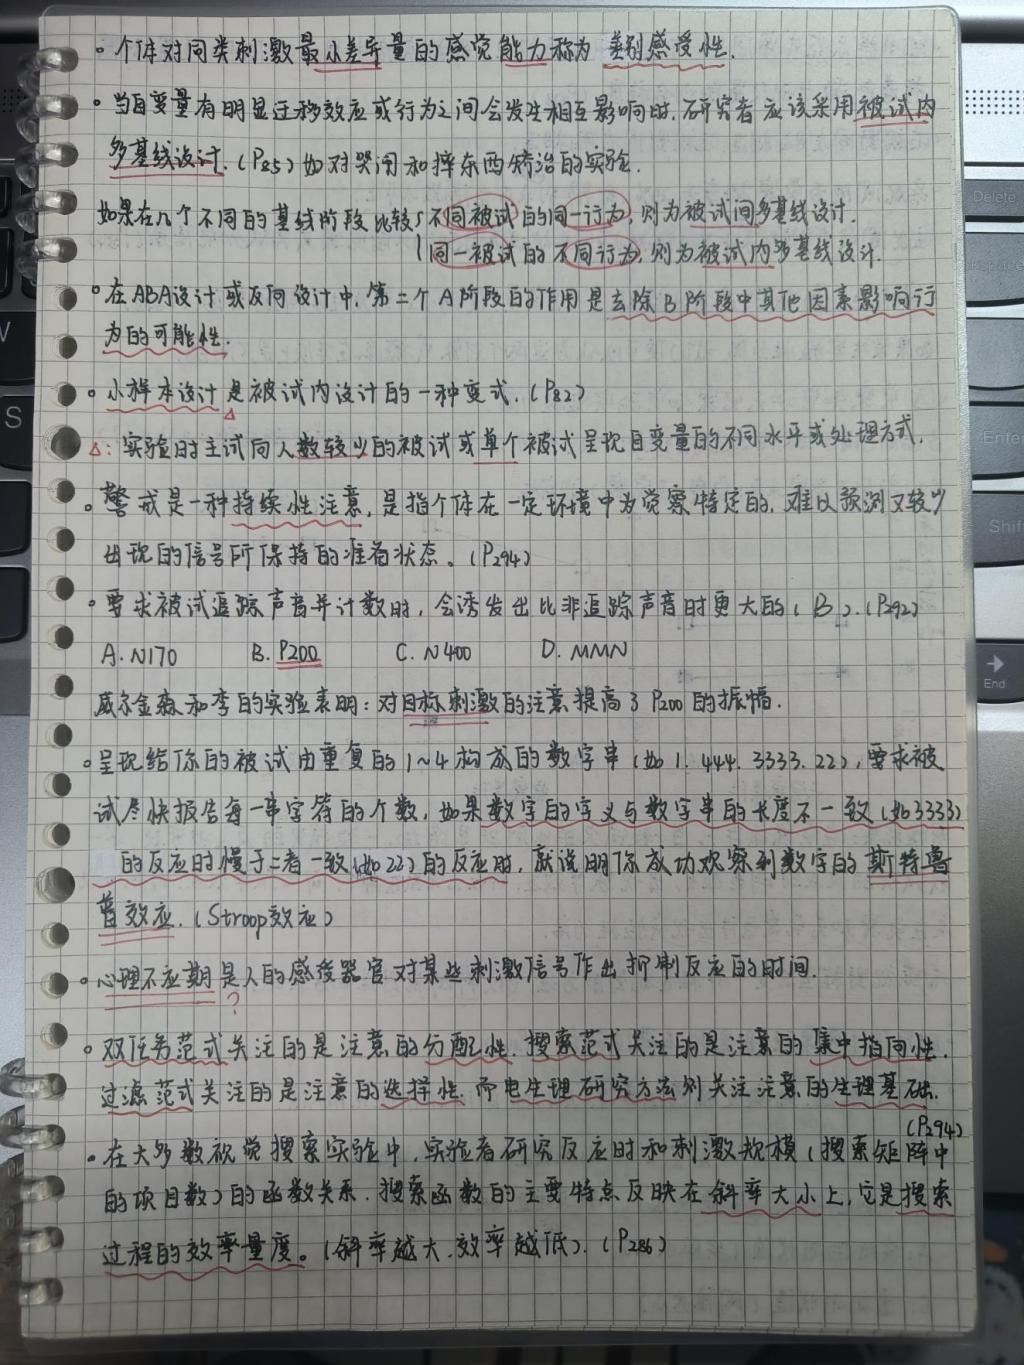 。个体对同类刺激最小差异量的感觉能力称为 差别感受性.
。当自变量有明显迁移效应或行为之间会发生相互影响时.研究者应该采用被试内
多基线设计.(P85)如对哭闹和摔东西矫治的实验.
如果在几个不同的基线阶段比较{不同被试的同一行为,则为被试间多基线设计.
同一被试的不同行为,则为被试内多基线设计.
。在ABA设计或反向设计中,第二个A阶段的作用是去除B阶段中其他因素影响行
为的可能性.
。小样本设计是被试内设计的一种变式.(P82)
△
△:实验时主试向人数较少的被试或单个被试呈现自变量的不同水平或处理方式.
。警戒是一种持续性注意,是指个体在一定环境中为觉察特定的,难以预测又较少
出现的信号所保持的准备状态。(P294)
。要求被试追踪声音并计数时,会诱发出比非追踪声音时更大的(B).(P292)
A.N170 B.P200 C.N400 D.MMN
威尔金森和李的实验表明:对目标刺激的注意提高了P200的振幅.
。呈现给你的被试由重复的1~4构成的数字串(如1.444.3333.22),要求被
试尽快报告每一串字符的个数,如果数字的字义与数字串的长度不一致(如3333)
的反应时慢于二者一致(如22)的反应时,就说明你成功观察到数字的斯特鲁
普效应.(Stroop效应)
。心理不应期是人的感受器官对某些刺激信号作出抑制反应的时间.
?
。双任务范式关注的是注意的分配性.搜索范式关注的是注意的集中指向性.
过滤范式关注的是注意的选择性.而电生理研究方法则关注注意的生理基础.
(P294)
。在大多数视觉搜索实验中,实验者研究反应时和刺激规模(搜索矩阵中
的项目数)的函数关系.搜索函数的主要特点反映在斜率大小上,它是搜索
过程的效率量度。(斜率越大.效率越低).(P286)
Delete
W
S
Enter
Shif
End